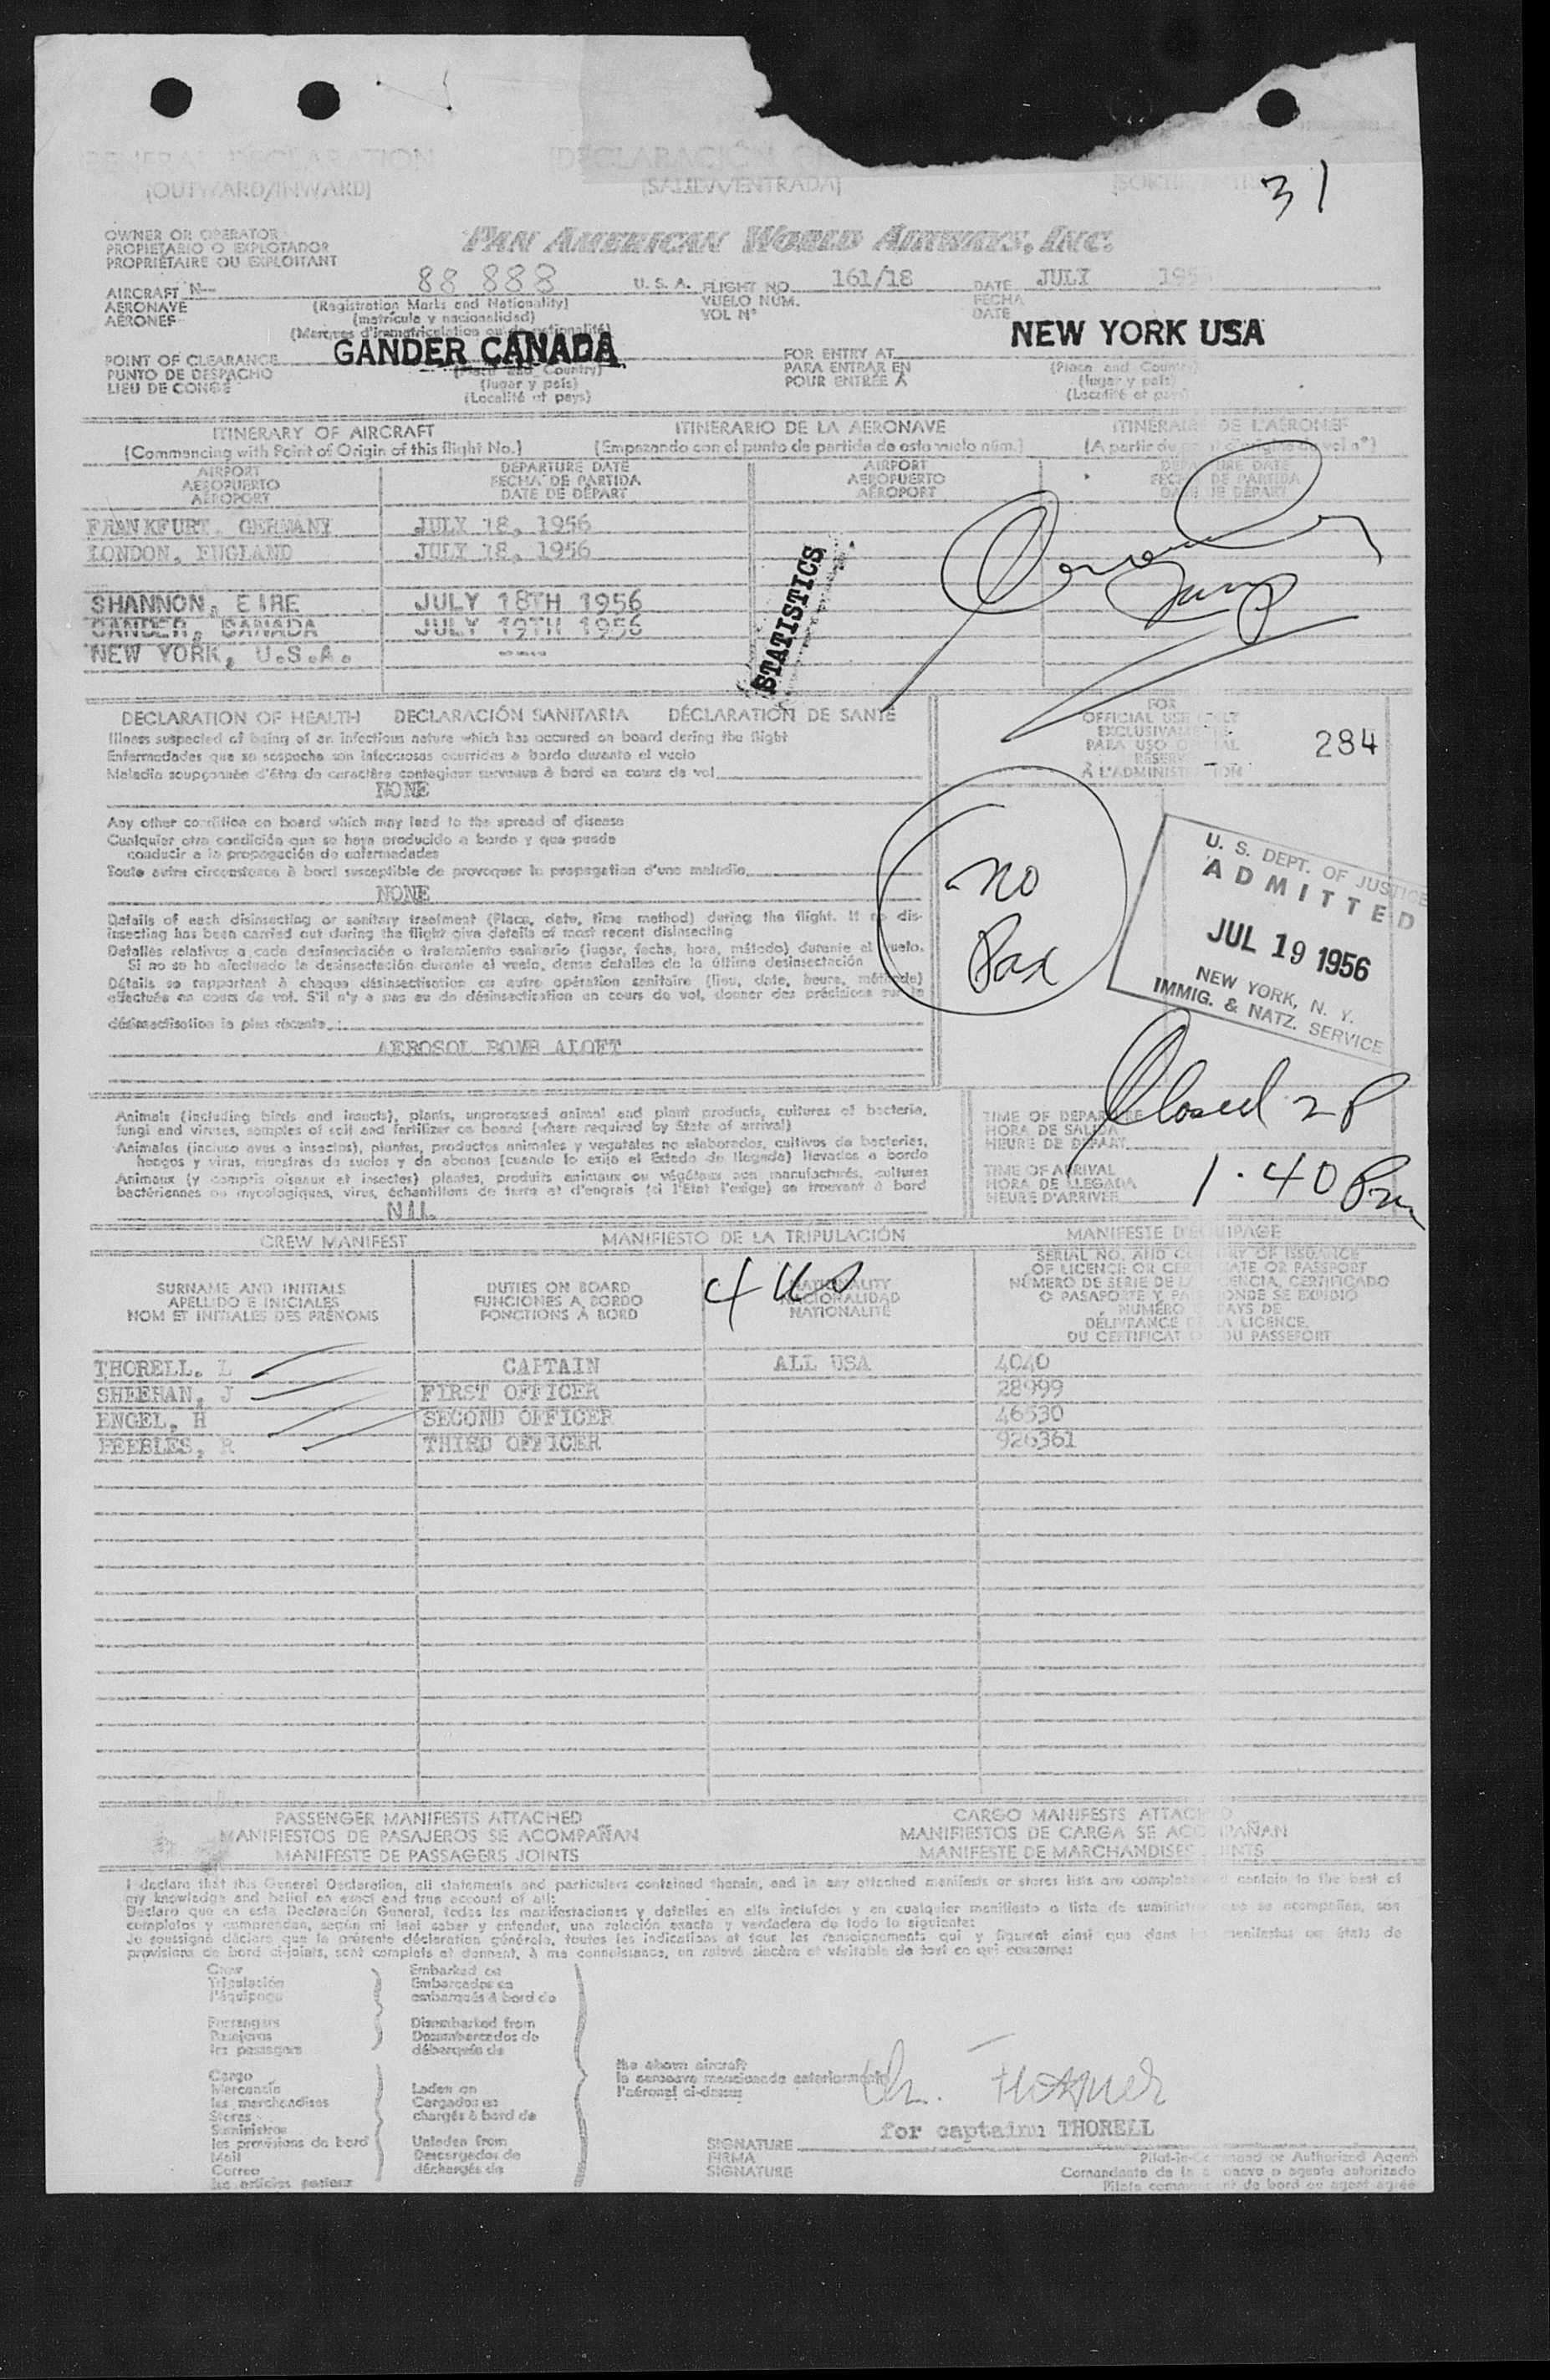 GENERAL DECLARATION DECLARACIÓN
(OUTWARD/INWARD) (SALIDA/ENTRADA)
31
OWNER OR OPERATOR
PROPIETARIO O EXPLOTADOR
PROPRIÉTAIRE OU EXPLOITANT
PAN AMERICAN WORLD AIRWAYS, INC.
AIRCRAFT N- 88888 U. S. A. FLIGHT NO. 161/18 DATE JULY
AERONAVE (Registration Marks and Nationality) VUELO NÚM. FECHA
AÉRONEF (matrícula y nacionalidad) VOL N° DATE
(Marques d'immatriculation ou de nationalité)
GANDER CANADA NEW YORK USA
POINT OF CLEARANCE (Place and Country) FOR ENTRY AT (Place and Country)
PUNTO DE DESPACHO (lugar y país) PARA ENTRAR EN (lugar y país)
LIEU DE CONGÉ (Localité et pays) POUR ENTRÉE À (Localité et pays)
ITINERARY OF AIRCRAFT ITINERARIO DE LA AERONAVE ITINÉRAIRE DE L'AÉRONEF
(Commencing with Point of Origin of this flight No.) (Empezando con el punto de partida de este vuelo núm.)
AIRPORT DEPARTURE DATE AIRPORT DEPARTURE DATE
AEROPUERTO FECHA DE PARTIDA AEROPUERTO FECHA DE PARTIDA
AÉROPORT DATE DE DÉPART AÉROPORT DATE DE DÉPART
FRANKFURT, GERMANY JULY 18, 1956
LONDON, ENGLAND JULY 18, 1956
SHANNON, EIRE JULY 18TH 1956
GANDER, CANADA JULY 19TH 1956
NEW YORK, U.S.A. ----
STATISTICS
DECLARATION OF HEALTH DECLARACIÓN SANITARIA DÉCLARATION DE SANTÉ
Illness suspected of being of an infectious nature which has occured on board during the flight
Enfermedades que se sospecha son infecciosas ocurridas a bordo durante el vuelo
Maladie soupçonnée d'être de caractère contagieux survenue à bord en cours de vol
NONE
FOR
OFFICIAL USE ONLY
EXCLUSIVAMENTE
PARA USO OFICIAL
RÉSERVÉ
À L'ADMINISTRATION
284
Any other condition on board which may lead to the spread of disease
Cualquier otra condición que se haya producido a bordo y que pueda
conducir a la propagación de enfermedades
Toute autre circonstance à bord susceptible de provoquer la propagation d'une maladie
NONE
no
Pax
U. S. DEPT. OF JUSTICE
ADMITTED
JUL 19 1956
NEW YORK, N. Y.
IMMIG. & NATZ. SERVICE
Details of each disinsecting or sanitary treatment (Place, date, time method) during the flight. If no dis-
insecting has been carried out during the flight give details of most recent disinsecting
Detalles relativos a cada desinsectación o tratamiento sanitario (lugar, fecha, hora, método) durante el vuelo.
Si no se ha efectuado la desinsectación durante el vuelo, dense detalles de la última desinsectación
Détails se rapportant à chaque désinsectisation ou autre opération sanitaire (lieu, date, heure, méthode)
effectuée en cours de vol. S'il n'y a pas eu de désinsectisation en cours de vol, donner des précisions sur la
désinsectisation la plus récente
AEROSOL BOMB ALOFT
Animals (including birds and insects), plants, unprocessed animal and plant products, cultures of bacteria,
fungi and viruses, samples of soil and fertilizer on board (where required by State of arrival)
Animales (incluso aves e insectos), plantas, productos animales y vegetales no elaborados, cultivos de bacterias,
hongos y virus, muestras de suelos y de abonos (cuando lo exija el Estado de llegada) llevados a bordo
Animaux (y compris oiseaux et insectes) plantes, produits animaux ou végétaux non manufacturés, cultures
bactériennes ou mycologiques, virus, échantillons de terre et d'engrais (si l'État l'exige) se trouvant à bord
NIL
Closed 2P
TIME OF DEPARTURE
HORA DE SALIDA
HEURE DE DÉPART
TIME OF ARRIVAL
HORA DE LLEGADA
HEURE D'ARRIVÉE
1.40 Pm
CREW MANIFEST MANIFIESTO DE LA TRIPULACIÓN MANIFESTE D'ÉQUIPAGE
SURNAME AND INITIALS DUTIES ON BOARD NATIONALITY
APELLIDO E INICIALES FUNCIONES A BORDO NACIONALIDAD
NOM ET INITIALES DES PRÉNOMS FONCTIONS À BORD NATIONALITÉ
SERIAL NO. AND COUNTRY OF ISSUANCE
OF LICENCE OR CERTIFICATE OR PASSPORT
NÚMERO DE SERIE DE LA LICENCIA, CERTIFICADO
O PASAPORTE Y PAÍS DONDE SE EXPIDIÓ
NUMÉRO PAYS DE
DÉLIVRANCE DE LA LICENCE,
DU CERTIFICAT OU DU PASSEPORT
THORELL, L CAPTAIN ALL USA 4040
SHEEHAN, J FIRST OFFICER 28999
ENGEL, H SECOND OFFICER 46530
PEEBLES, R THIRD OFFICER 926361
PASSENGER MANIFESTS ATTACHED CARGO MANIFESTS ATTACHED
MANIFIESTOS DE PASAJEROS SE ACOMPAÑAN MANIFIESTOS DE CARGA SE ACOMPAÑAN
MANIFESTE DE PASSAGERS JOINTS MANIFESTE DE MARCHANDISES JOINTS
I declare that this General Declaration, all statements and particulars contained therein, and in any attached manifests or stores lists are complete and contain to the best of
my knowledge and belief an exact and true account of all:
Declaro que en esta Declaración General, todas las manifestaciones y detalles en ella incluídos y en cualquier manifiesto o lista de suministros que se acompañen, son
completos y comprenden, según mi leal saber y entender, una relación exacta y verdadera de todo lo siguiente:
Je soussigné déclare que la présente déclaration générale, toutes les indications et tous les renseignements qui y figurent ainsi que dans les manifestes ou états de
provisions de bord ci-joints, sont complets et donnent, à ma connaissance, un relevé sincère et véritable de tout ce qui concerne:
Crew Embarked on
Tripulación Embarcados en
l'équipage embarqués à bord de
Passengers Disembarked from
Pasajeros Desembarcados de
les passagers débarqués de
the above aircraft
la aeronave mencionada anteriormente
l'aéronef ci-dessus
Cargo
Mercancía Laden on
les marchandises Cargados en
Stores chargés à bord de
Suministros
les provisions de bord Unladen from
Mail Descargados de
Correo déchargés de
les articles postaux
for captain THORELL
SIGNATURE
FIRMA
SIGNATURE
Pilot-in-Command or Authorized Agent
Comandante de la aeronave o agente autorizado
Pilote commandant de bord ou agent agréé